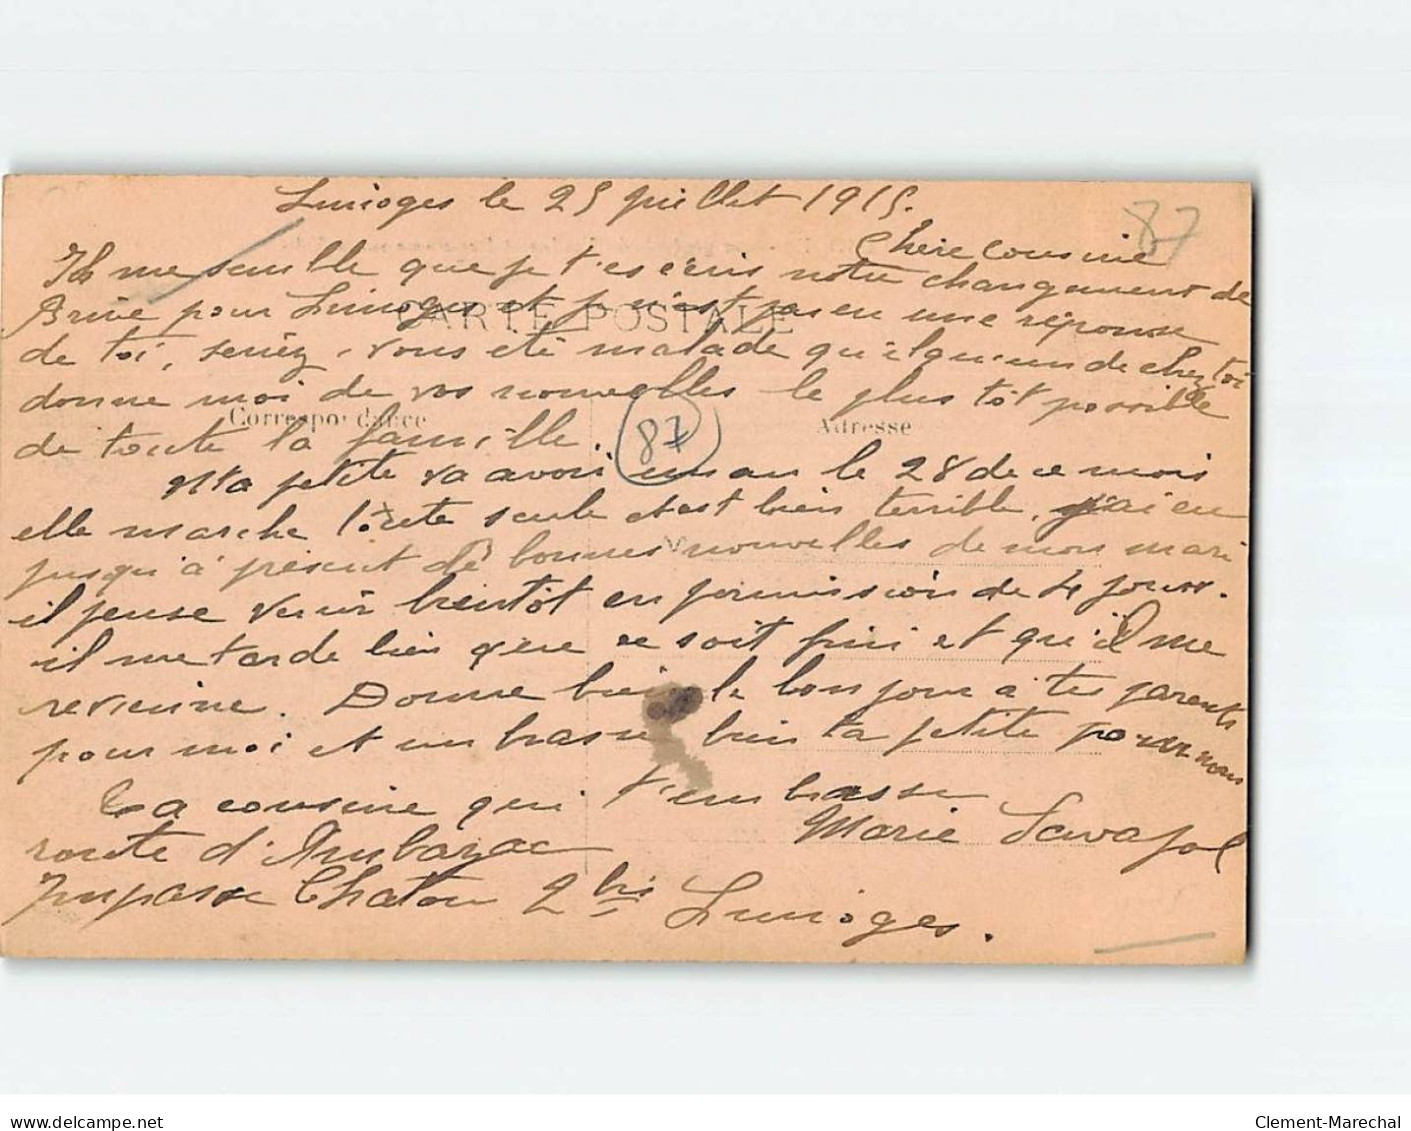 Limoges le 25 Juillet 1915.
87
Chère Cousine
Il me semble que je t'es écris notre changement de
Brive pour Limoges et je n'est pas eu une réponse
CARTE POSTALE
de toi, seriez, vous eté malade qu'elqu'un de chez toi
donne moi de vos nouvelles le plus tôt possible
Correspondance
Adresse
de toute la famille.
87
Ma petite va avoir un an le 28 de ce mois
elle marche toute seule c'est bien terrible, j'ai eu
jusqu'à présent de bonnes nouvelles de mon mari
il pense venir bientôt en permission de 4 jours.
il me tarde bien que ce soit fini et qu'il me
revienne. Donne bien le bonjour à tes parents
pour moi et embrasse bien ta petite pour nous
Ta cousine qui t'embrasse
Marie
route d'Ambazac
Impasse Chaton 2 bis Limoges.
delcampe.net
Clement-Marechal